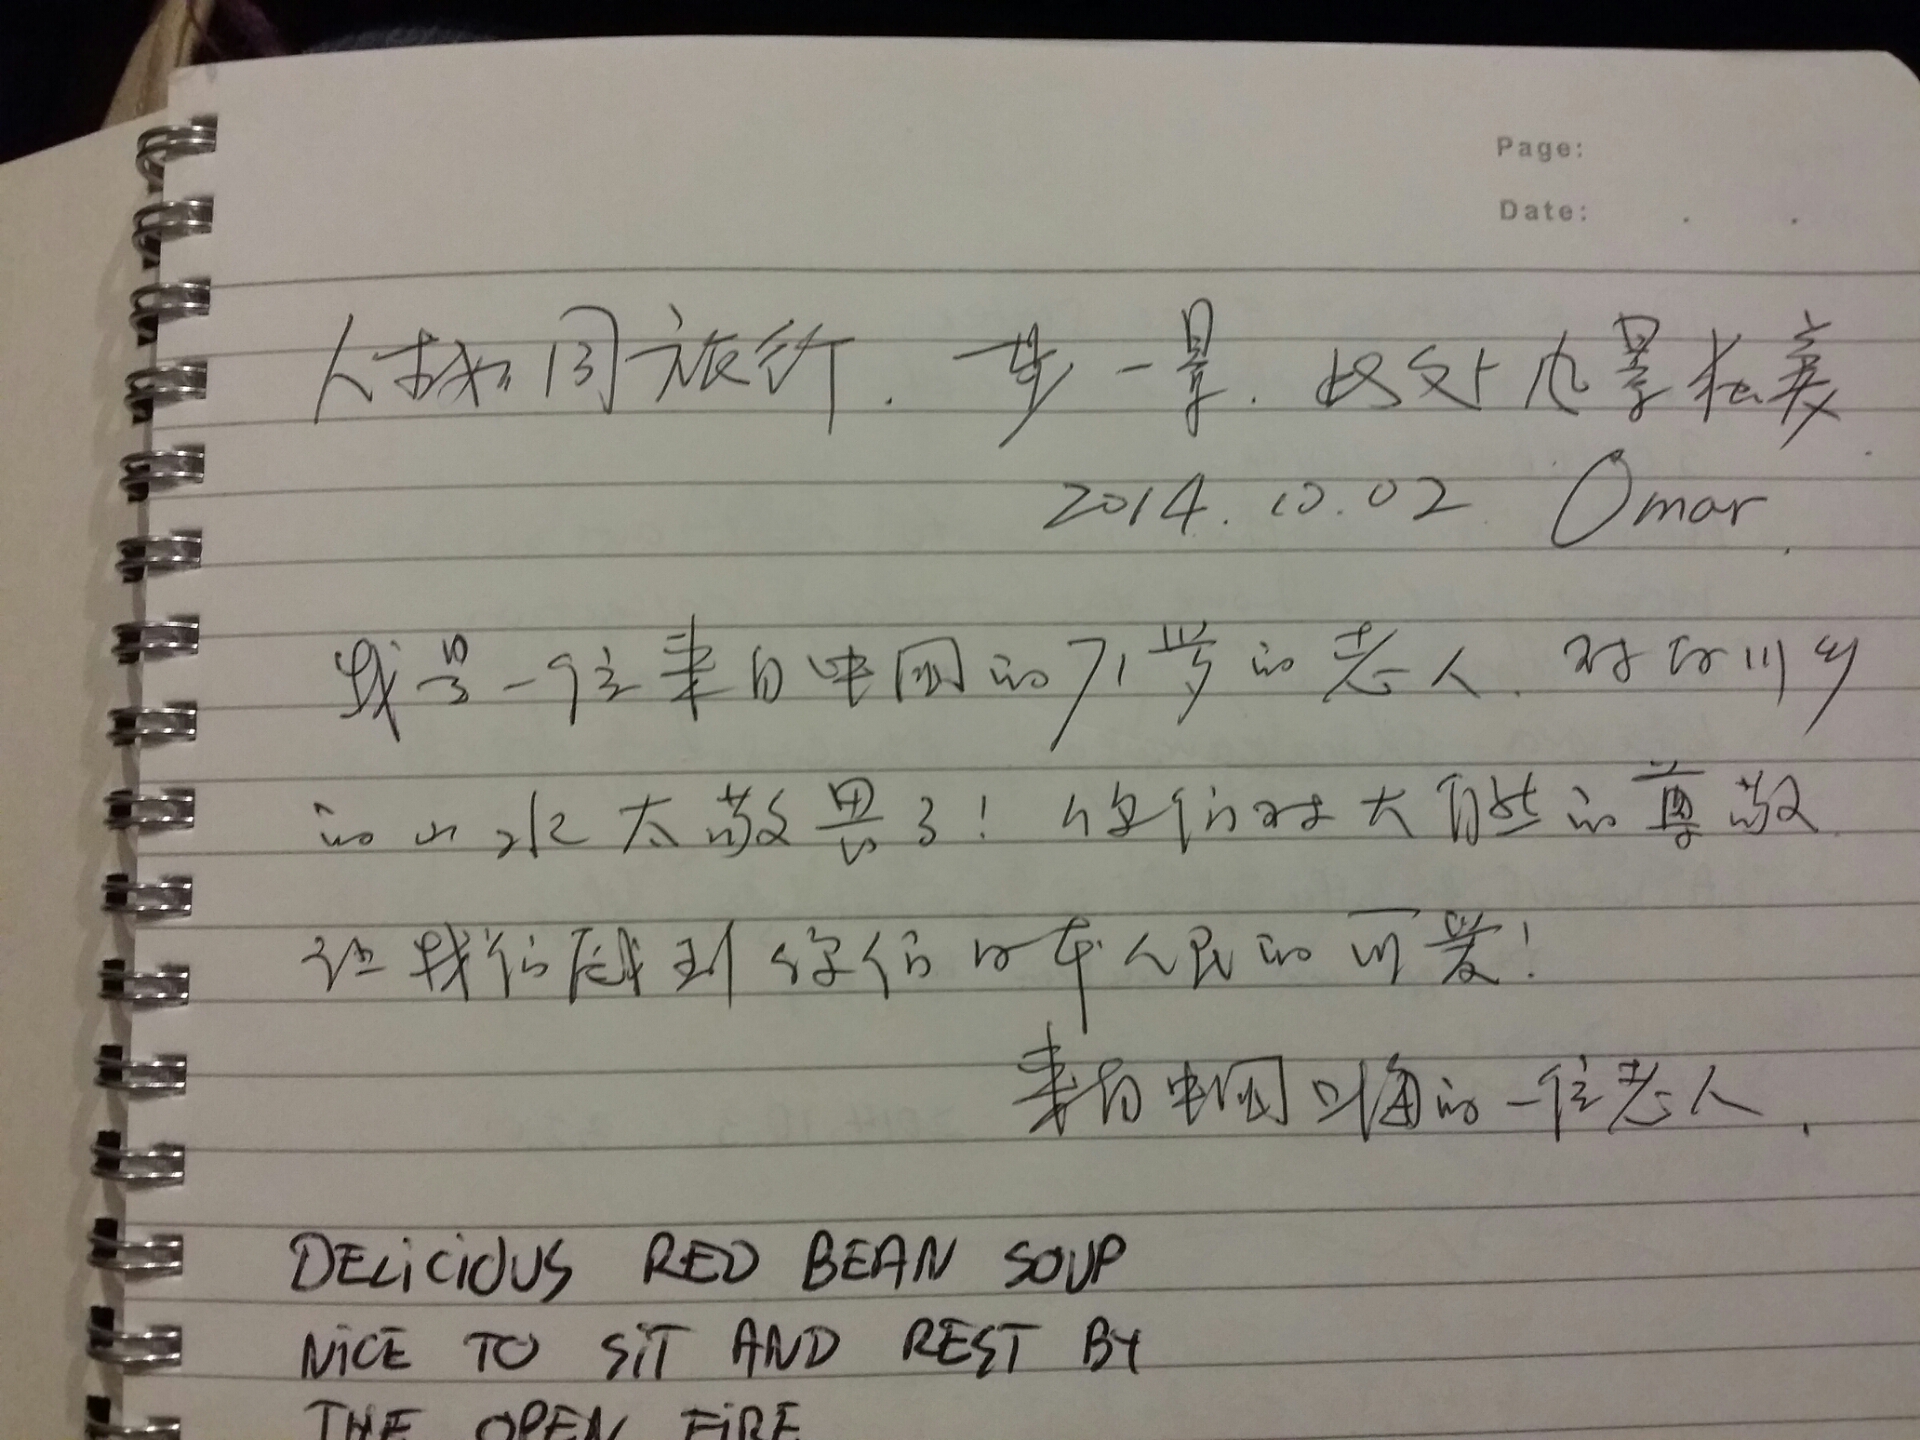 Page:
Date: . .
人生如同旅行. 一步一景. 此处风景极美.
2014.10.02 Omar.
我是一位来自中国的71岁的老人. 对白川乡
的山水太敬畏了! 你们对大自然的尊敬
让我们感到你们日本人民的可爱!
来自中国上海的一位老人.
DELiCiOUS RED BEAN SOUP
NiCE TO SiT AND REST BY
THE OPEN FiRE